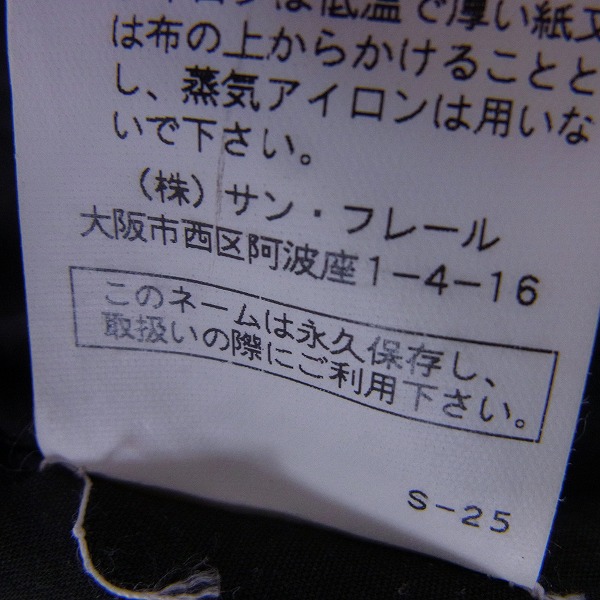 は低温で厚い紙又
は布の上からかけることと
し、蒸気アイロンは用いな
いで下さい。
(株)サン・フレール
大阪市西区阿波座1-4-16
このネームは永久保存し、
取扱いの際にご利用下さい。
S-25